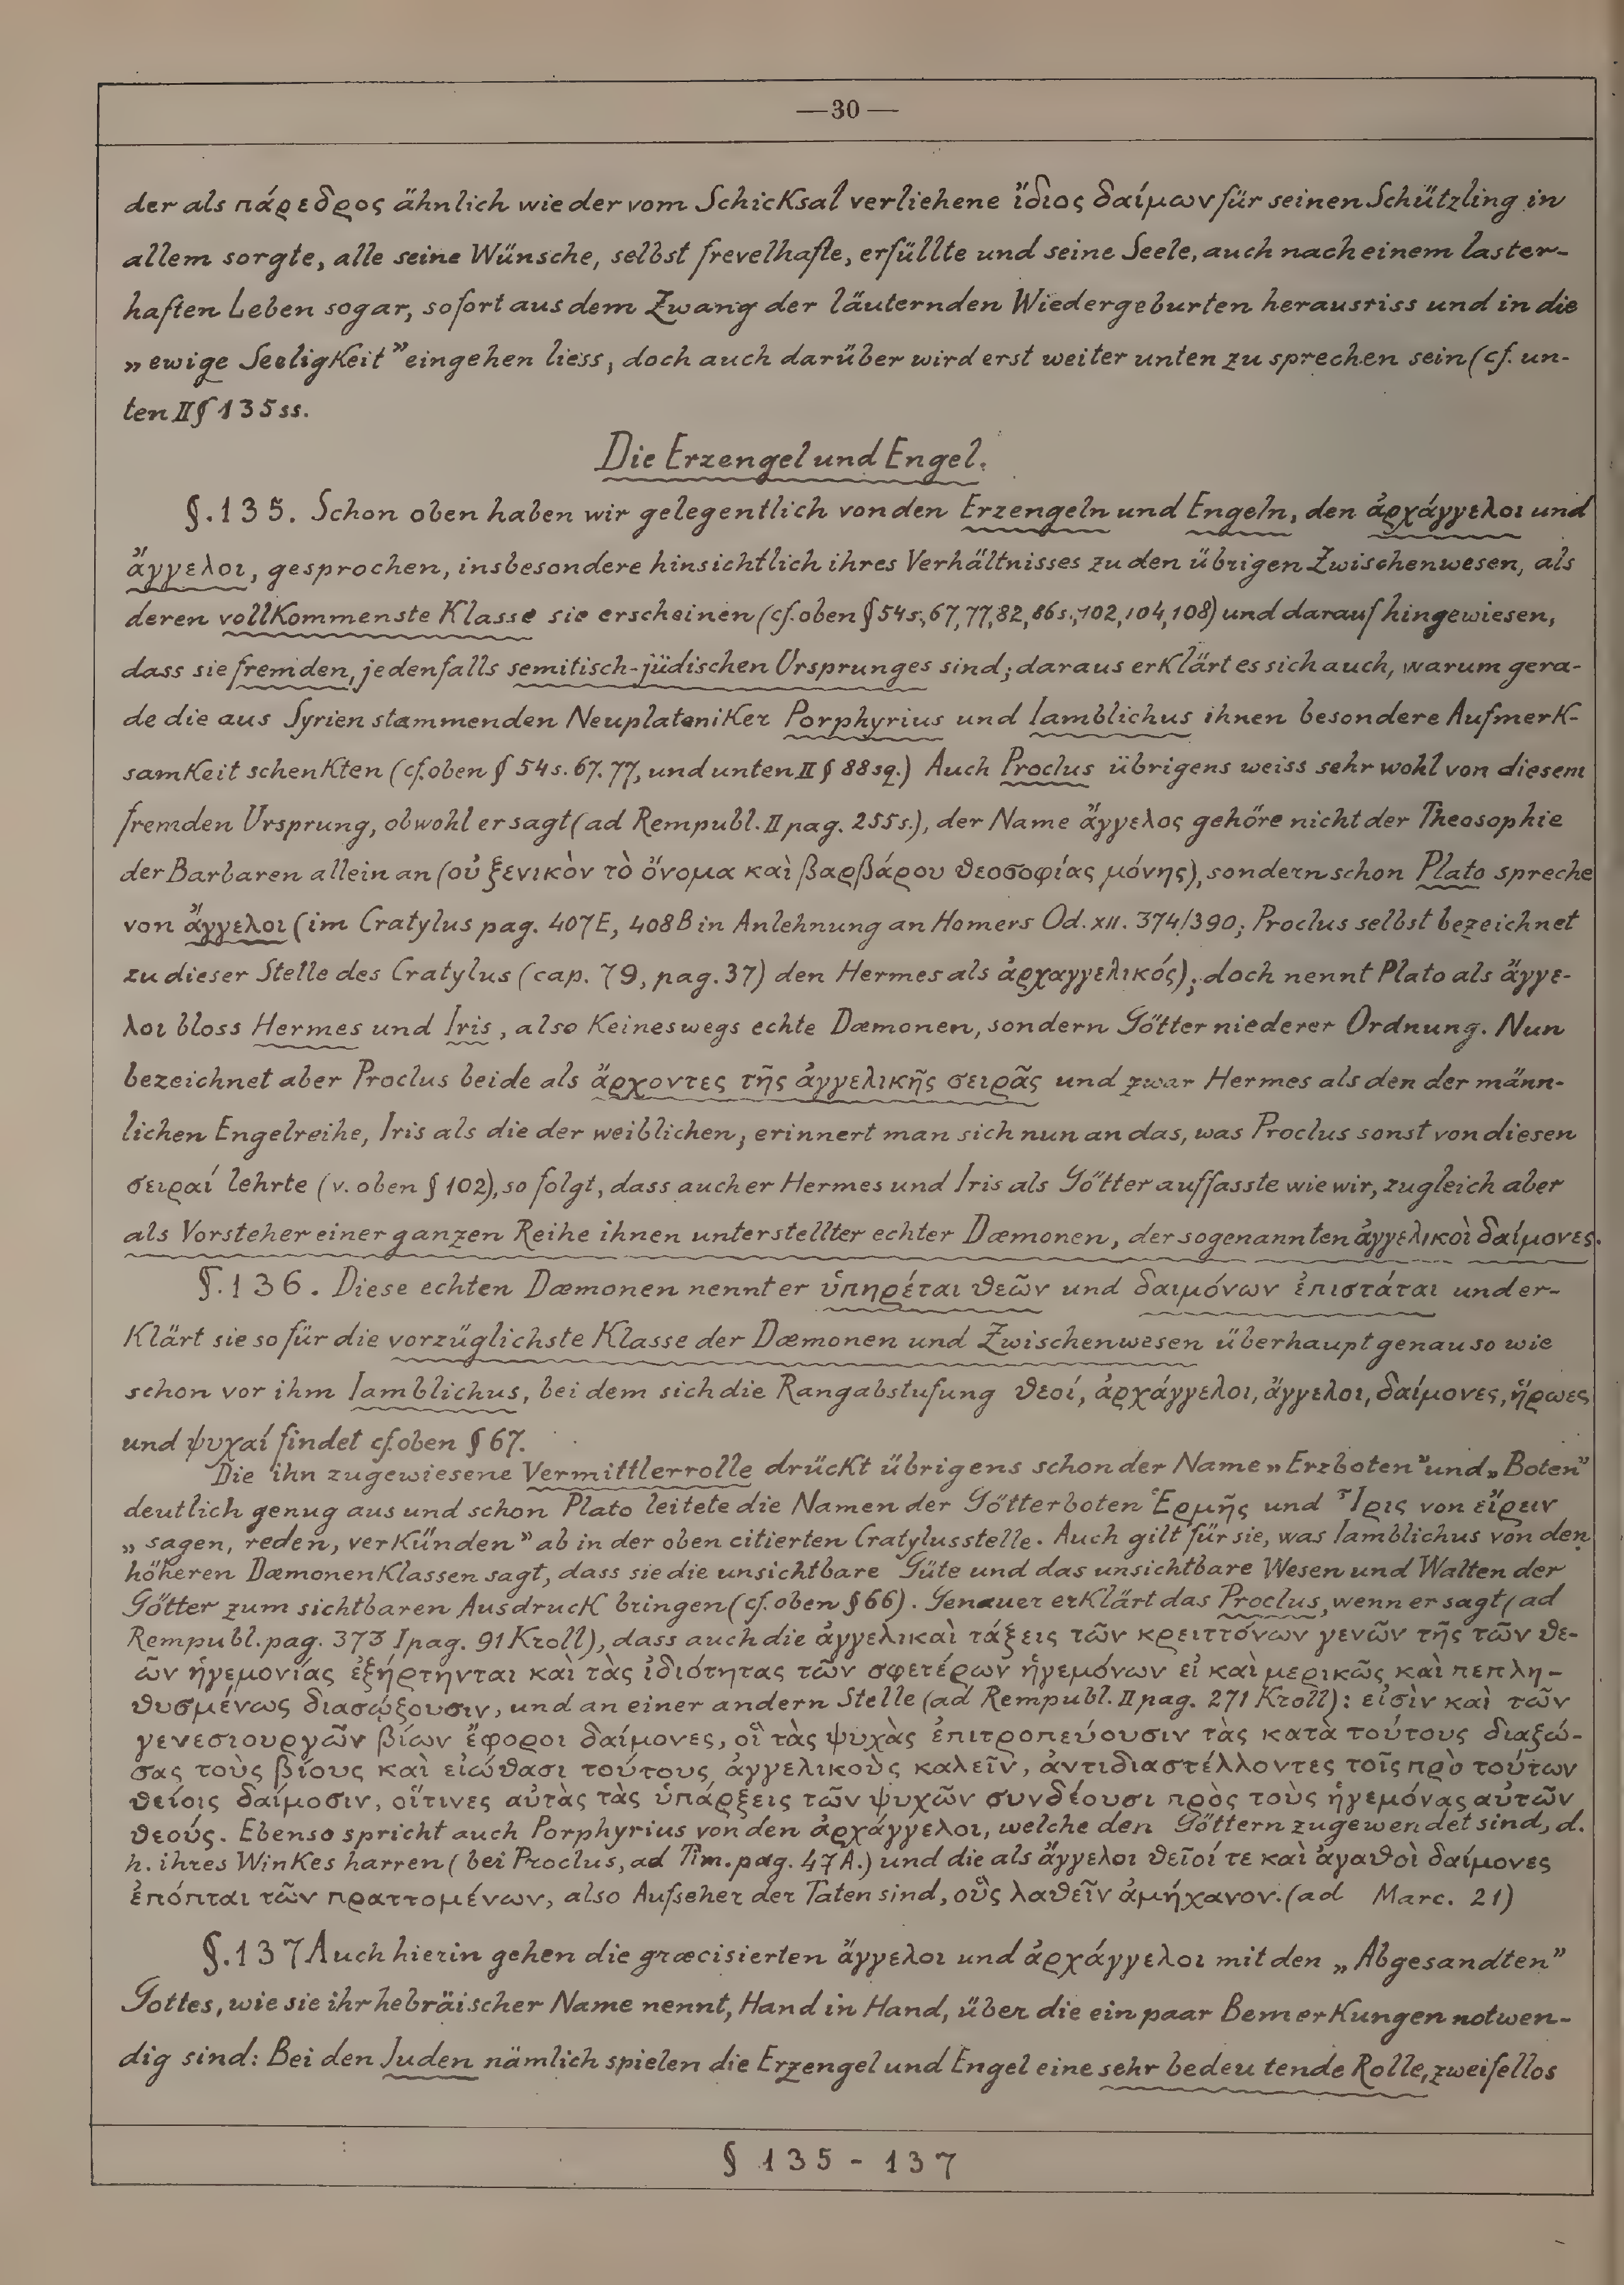 —30—
der als πάρεδρος ähnlich wie der vom Schicksal verliehene ἴδιος δαίμων für seinen Schützling in
allem sorgte, alle seine Wünsche, selbst frevelhafte, erfüllte und seine Seele, auch nach einem laster-
haften Leben sogar, sofort aus dem Zwang der läuternden Wiedergeburten herausriss und in die
„ewige Seeligkeit” eingehen liess, doch auch darüber wird erst weiter unten zu sprechen sein (cf. un-
ten II § 135 ss.
Die Erzengel und Engel.
§.135. Schon oben haben wir gelegentlich von den Erzengeln und Engeln, den ἀρχάγγελοι und
ἄγγελοι, gesprochen, insbesondere hinsichtlich ihres Verhältnisses zu den übrigen Zwischenwesen, als
deren vollkommenste Klasse sie erscheinen (cf. oben § 54s., 67, 77, 82, 86s., 102, 104, 108) und darauf hingewiesen,
dass sie fremden, jedenfalls semitisch-jüdischen Ursprunges sind; daraus erklärt es sich auch, warum gera-
de die aus Syrien stammenden Neuplatoniker Porphyrius und Iamblichus ihnen besondere Aufmerk-
samkeit schenkten (cf. oben § 54s. 67. 77, und unten II § 88 sq.) Auch Proclus übrigens weiss sehr wohl von diesem
fremden Ursprung, obwohl er sagt (ad Rempubl. II pag. 255s.), der Name ἄγγελος gehöre nicht der Theosophie
der Barbaren allein an (οὐ ξενικὸν τὸ ὄνομα καὶ βαρβάρου θεοσοφίας μόνης), sondern schon Plato spreche
von ἄγγελοι (im Cratylus pag. 407E, 408B in Anlehnung an Homers Od. XII. 374/390; Proclus selbst bezeichnet
zu dieser Stelle des Cratylus (cap. 79, pag. 37) den Hermes als ἀρχαγγελικός); doch nennt Plato als ἄγγε-
λοι bloss Hermes und Iris, also keineswegs echte Dæmonen, sondern Götter niederer Ordnung. Nun
bezeichnet aber Proclus beide als ἄρχοντες τῆς ἀγγελικῆς σειρᾶς und zwar Hermes als den der männ-
lichen Engelreihe, Iris als die der weiblichen; erinnert man sich nun an das, was Proclus sonst von diesen
σειραί lehrte (v. oben § 102), so folgt, dass auch er Hermes und Iris als Götter auffasste wie wir, zugleich aber
als Vorsteher einer ganzen Reihe ihnen unterstellter echter Dæmonen, der sogenannten ἀγγελικοὶ δαίμονες.
§.136. Diese echten Dæmonen nennt er ὑπηρέται θεῶν und δαιμόνων ἐπιστάται und er-
klärt sie so für die vorzüglichste Klasse der Dæmonen und Zwischenwesen überhaupt genau so wie
schon vor ihm Iamblichus, bei dem sich die Rangabstufung θεοί, ἀρχάγγελοι, ἄγγελοι, δαίμονες, ἥρωες
und ψυχαί findet cf. oben § 67.
Die ihn zugewiesene Vermittlerrolle drückt übrigens schon der Name „Erzboten” und „Boten”
deutlich genug aus und schon Plato leitete die Namen der Götterboten Ἑρμῆς und Ἶρις von εἴρειν
„sagen, reden, verkünden” ab in der oben citierten Cratylusstelle. Auch gilt für sie, was Iamblichus von den
höheren Dæmonenklassen sagt, dass sie die unsichtbare Güte und das unsichtbare Wesen und Walten der
Götter zum sichtbaren Ausdruck bringen (cf. oben § 66). Genauer erklärt das Proclus, wenn er sagt (ad
Rempubl. pag. 373 I pag. 91 Kroll), dass auch die ἀγγελικαὶ τάξεις τῶν κρειττόνων γενῶν τῆς τῶν θε-
ῶν ἡγεμονίας ἐξήρτηνται καὶ τὰς ἰδιότητας τῶν σφετέρων ἡγεμόνων εἰ καὶ μερικῶς καὶ πεπλη-
θυσμένως διασῴζουσιν, und an einer andern Stelle (ad Rempubl. II pag. 271 Kroll): εἰσὶν καὶ τῶν
γενεσιουργῶν βίων ἔφοροι δαίμονες, οἳ τὰς ψυχὰς ἐπιτροπεύουσιν τὰς κατὰ τούτους διαζώ-
σας τοὺς βίους καὶ εἰώθασι τούτους ἀγγελικοὺς καλεῖν, ἀντιδιαστέλλοντες τοῖς πρὸ τούτων
θείοις δαίμοσιν, οἵτινες αὐτὰς τὰς ὑπάρξεις τῶν ψυχῶν συνδέουσι πρὸς τοὺς ἡγεμόνας αὐτῶν
θεούς. Ebenso spricht auch Porphyrius von den ἀρχάγγελοι, welche den Göttern zugewendet sind, d.
h. ihres Winkes harren (bei Proclus, ad Tim. pag. 47A.) und die als ἄγγελοι θεῖοί τε καὶ ἀγαθοὶ δαίμονες
ἐπόπται τῶν πραττομένων, also Aufseher der Taten sind, οὓς λαθεῖν ἀμήχανον. (ad Marc. 21)
§.137 Auch hierin gehen die græcisierten ἄγγελοι und ἀρχάγγελοι mit den „Abgesandten”
Gottes, wie sie ihr hebräischer Name nennt, Hand in Hand, über die ein paar Bemerkungen notwen-
dig sind: Bei den Juden nämlich spielen die Erzengel und Engel eine sehr bedeutende Rolle, zweifellos
§ 135 - 137